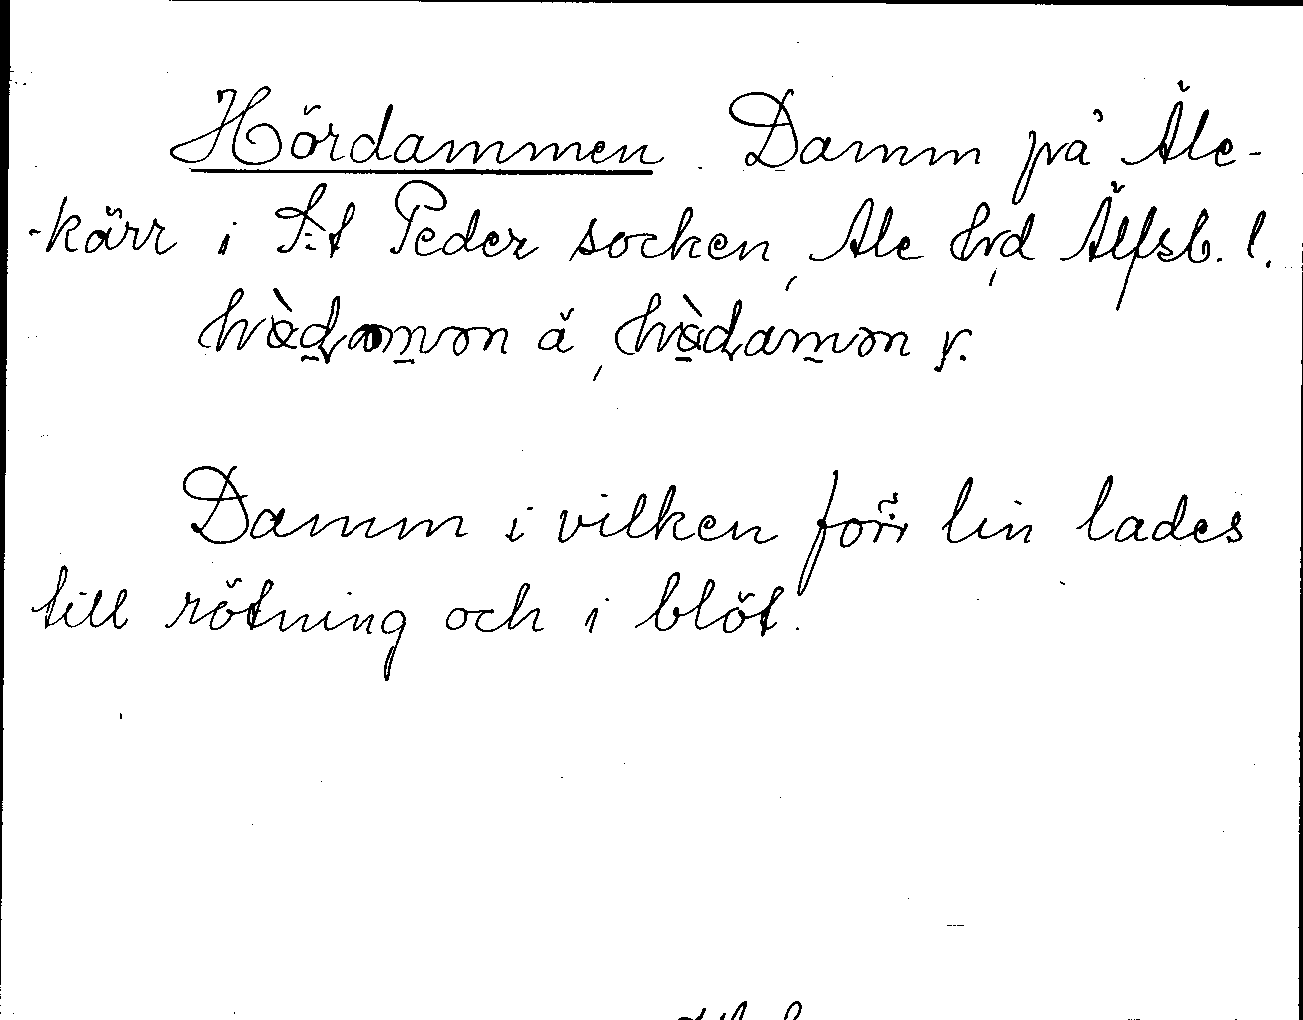 Hördammen. Damm på Äle-
-kärr i S:t Peder socken, Ale hd, Älfsb. l.
å, y.
Damm i vilken förr lin lades
till rötning och i blöt.